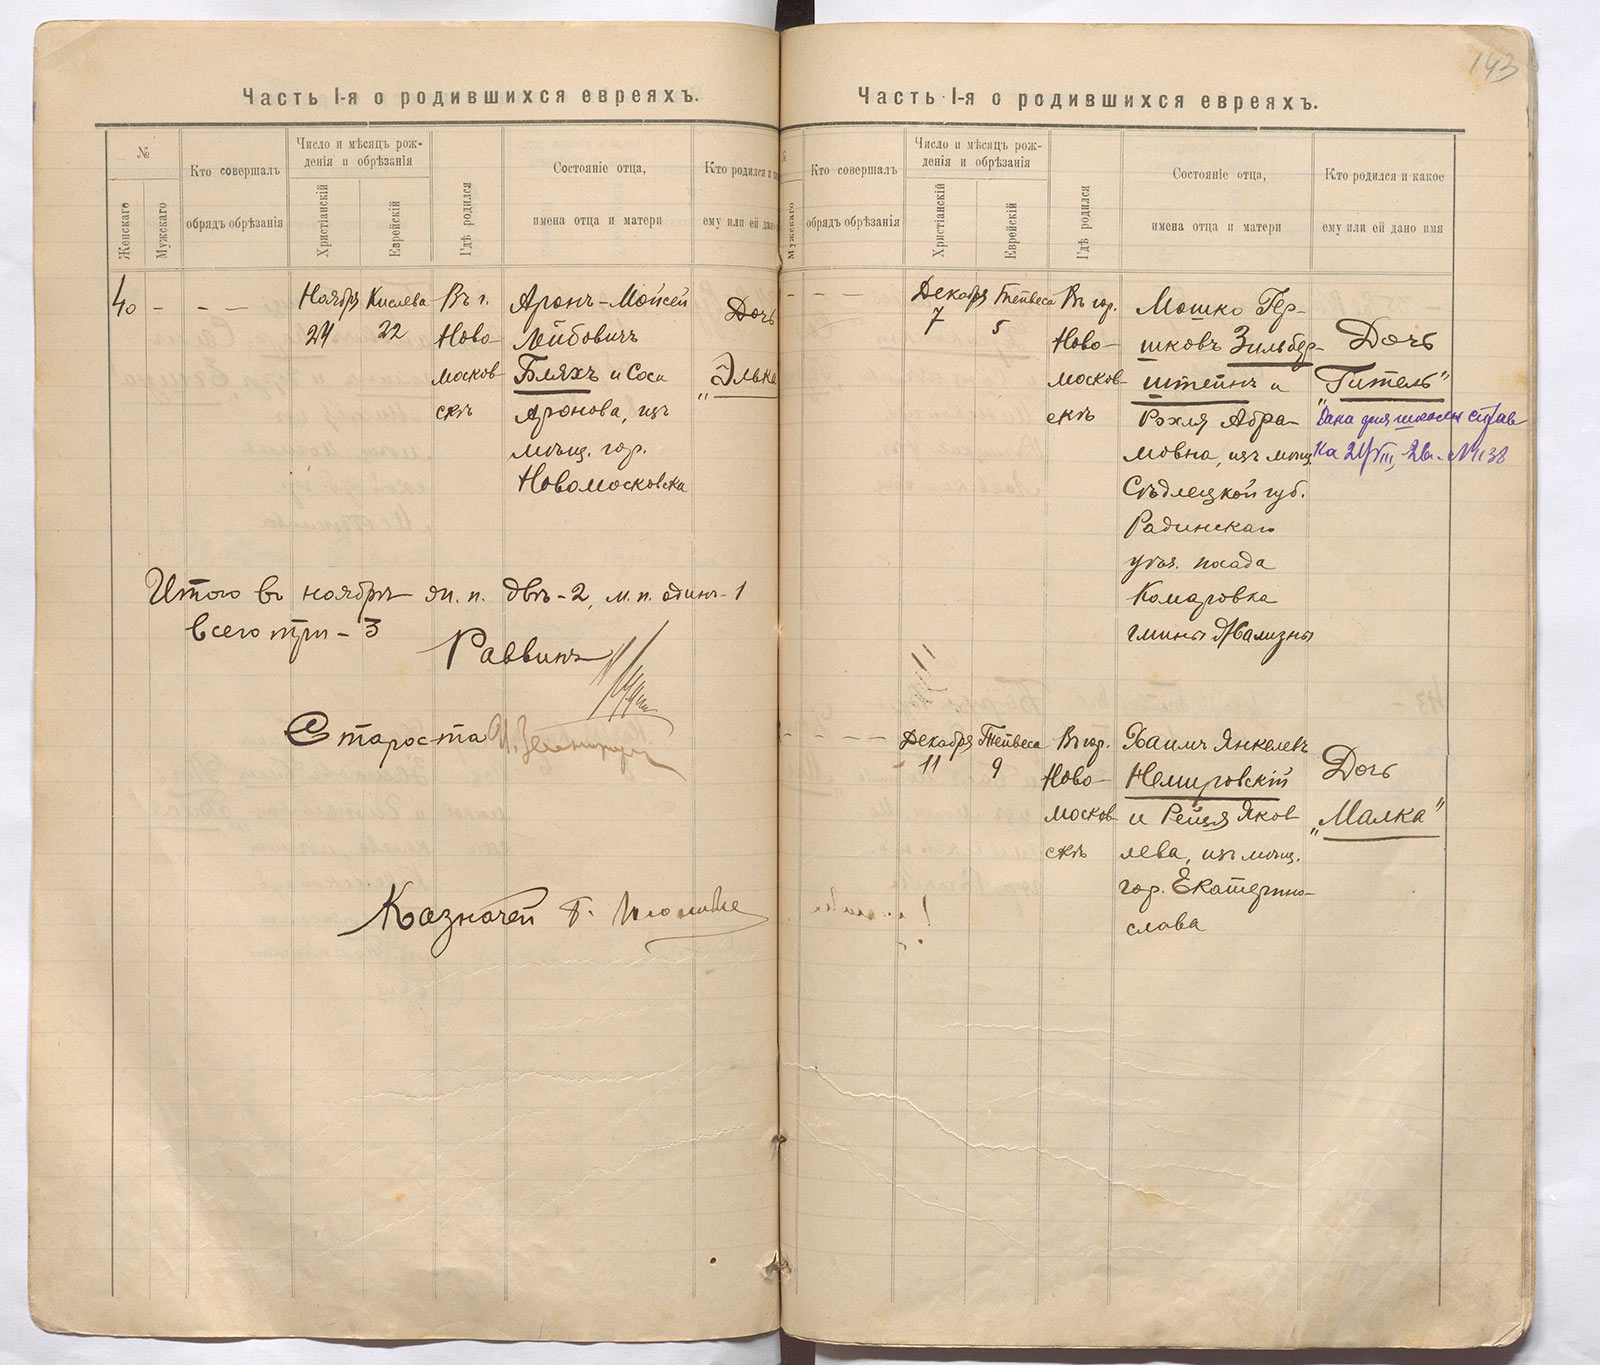 Часть I-я о родившихся евреяхъ.
№
Женскаго
Мужскаго
Кто совершалъ
обрядъ обрѣзанія
Число и мѣсяцъ рож-
денія и обрѣзанія
Христіанскій
Еврейскій
Гдѣ родился
Состояніе отца,
имена отца и матери
Кто родился и
ему или ей дано
40 - - - -
Ноября
24
Кислева
22
Въ г.
Ново-
москов-
скѣ
Аронъ-Мойсей
Лейбовичъ
Бляхъ и Сося
Аронова, изъ
мѣщ. гор.
Новомосковска
Дочь
„Элька
Итого въ ноябрѣ ж. п. двѣ-2, м. п. одинъ-1
всего три-3
Раввинъ
Староста
Казначей
143
Часть I-я о родившихся евреяхъ.
Мужскаго
Кто совершалъ
обрядъ обрѣзанія
Число и мѣсяцъ рож-
денія и обрѣзанія
Христіанскій
Еврейскій
Гдѣ родился
Состояніе отца,
имена отца и матери
Кто родился и какое
ему или ей дано имя
- - - -
Декабря
7
Тейвеса
5
Въ гор.
Ново-
москов-
скѣ
Мошко Гер-
шковъ Зильбер-
штейнъ и
Рохля Абра-
мовна, изъ мѣщ.
Сѣдлецкой губ.
Радинскаго
уѣз. посада
Комаровка
гмины
Дочь
„Гитель"
Дана для школы справ
ка
Декабря
11
Тейвеса
9
Въ гор.
Ново-
москов-
скѣ
Хаимъ Янкелевъ
Немировскій
и Рейзя Яков
лева, изъ мѣщ.
гор. Екатерино-
слава
Дочь
„Малка"